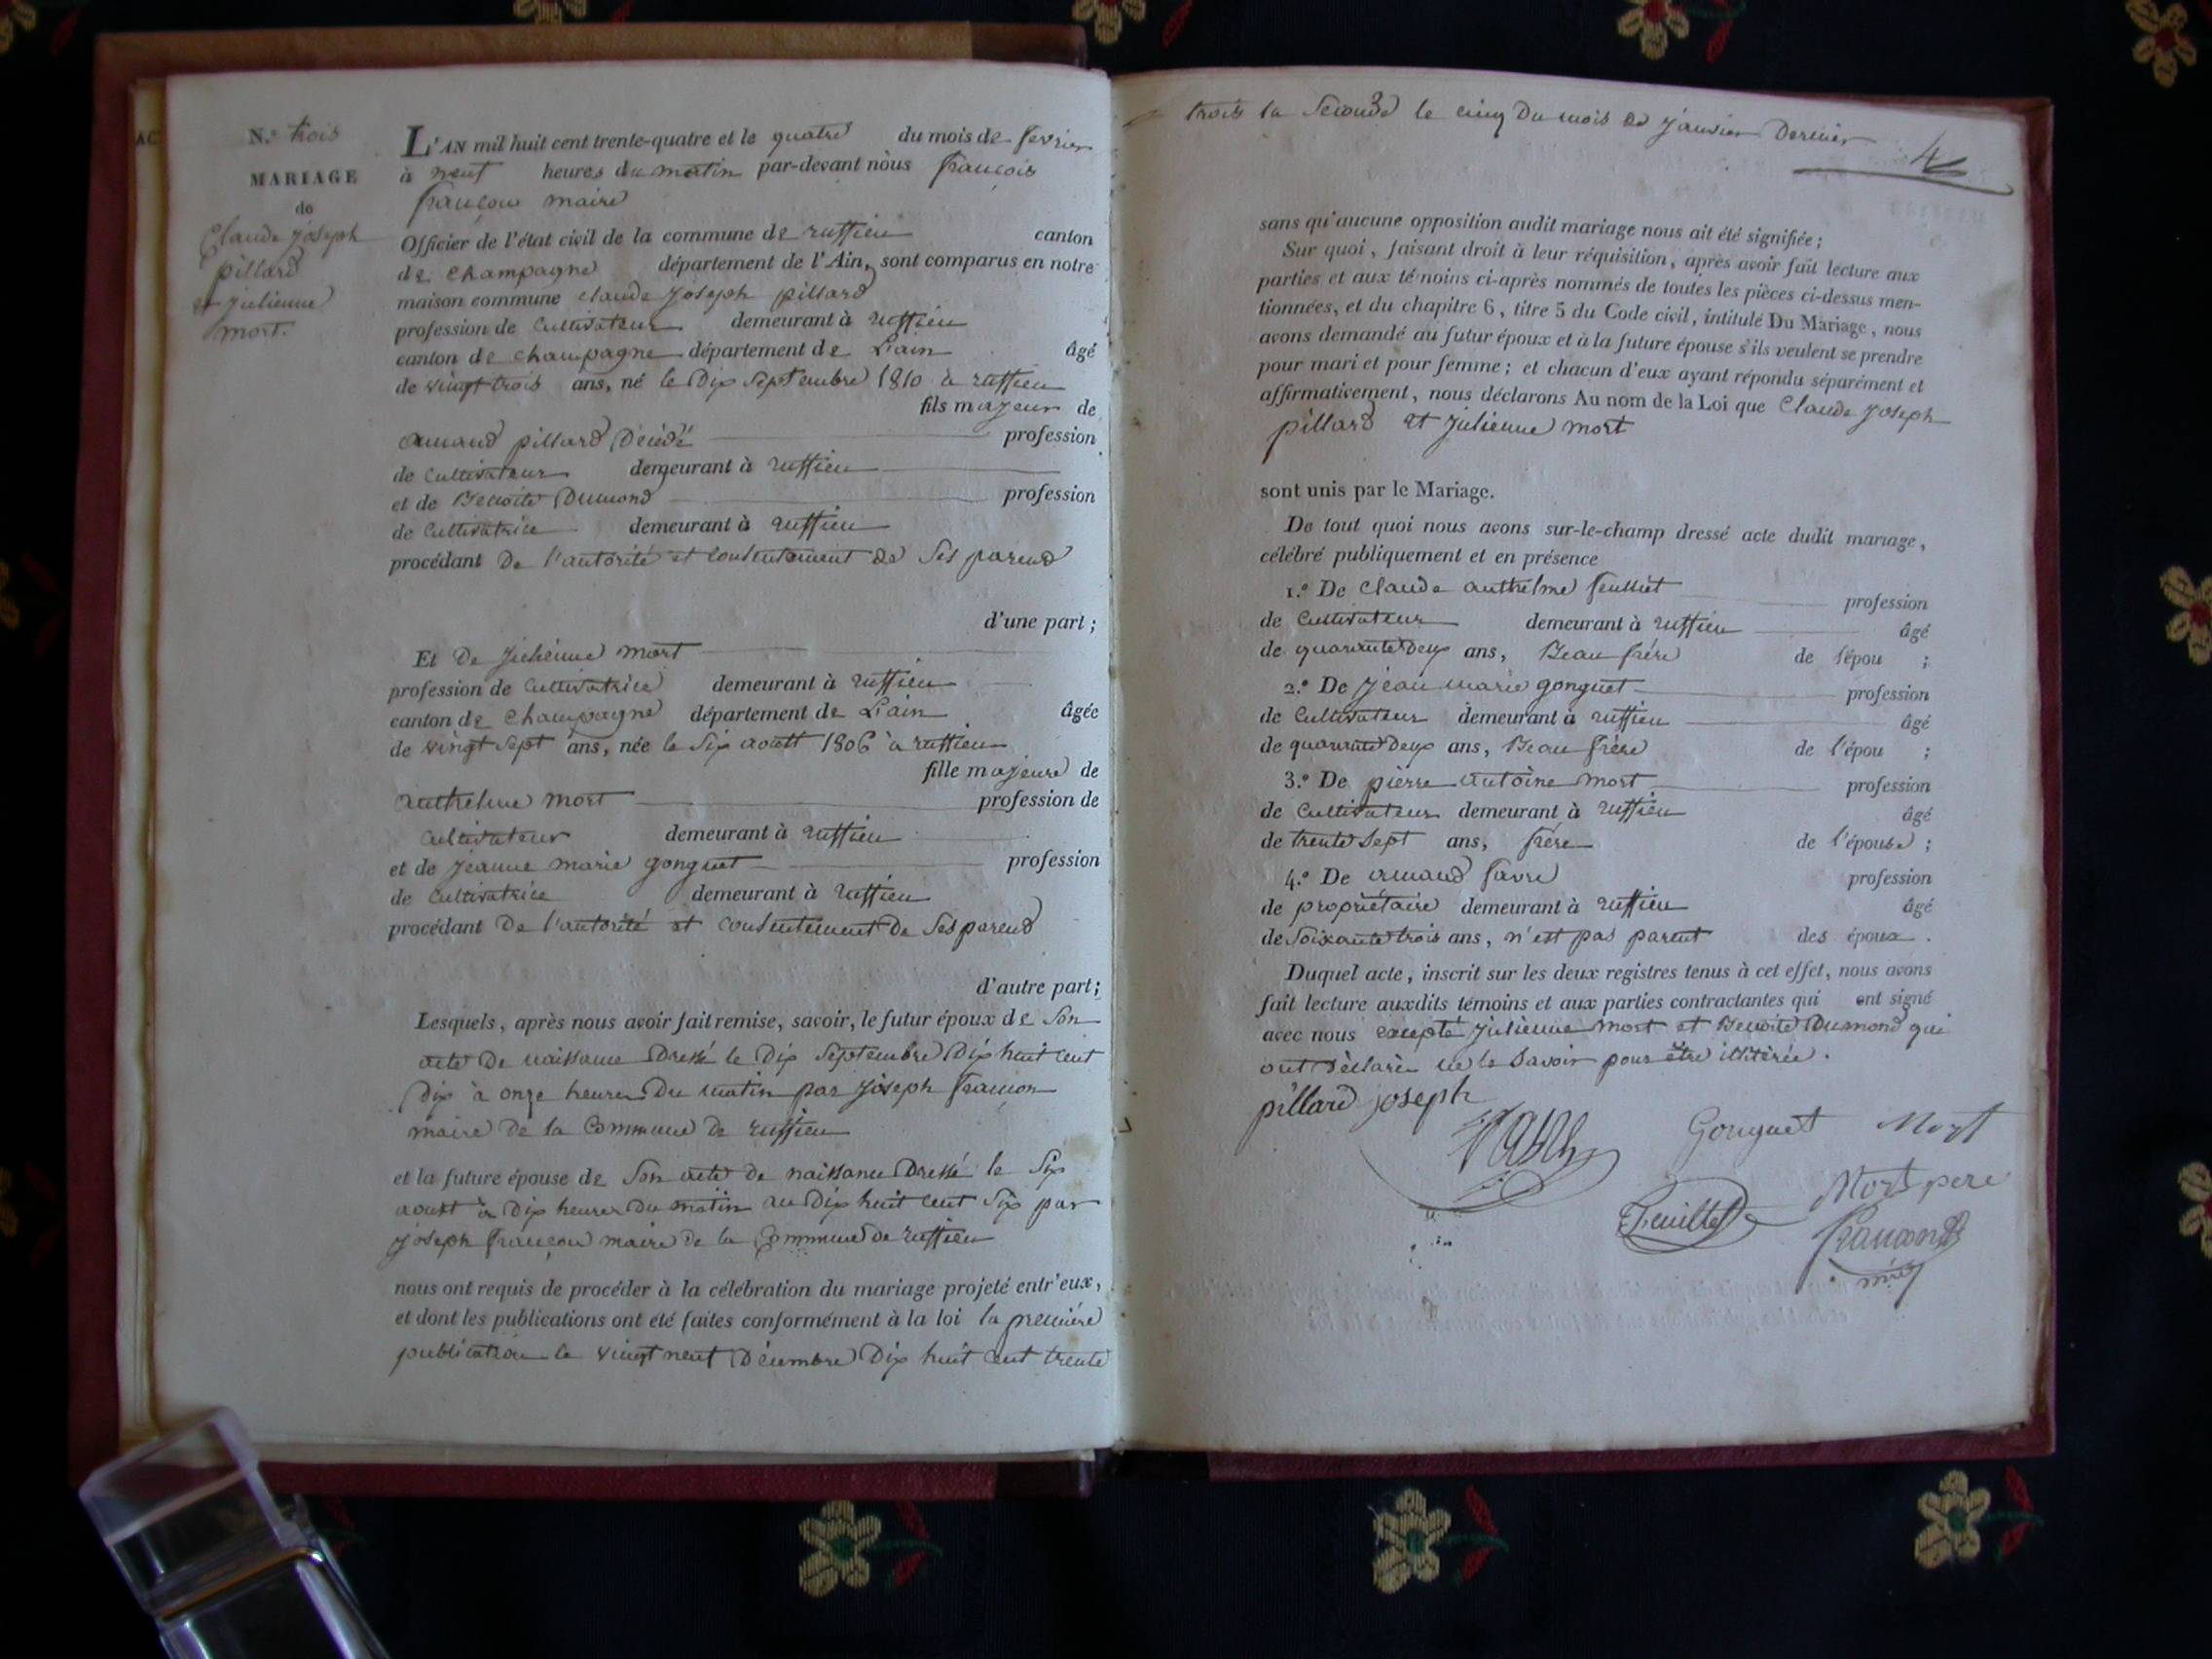 AC
N.º trois
MARIAGE
de
Claude joseph
pillard
et julienne
mort.
L'AN mil huit cent trente-quatre et le quatre du mois de fevrier
à neuf heures du matin par-devant nous françois
françon maire
Officier de l'état civil de la commune de ruffieu canton
de champagne département de l'Ain, sont comparus en notre
maison commune claude joseph pillard
profession de Cultivateur demeurant à ruffieu
canton de champagne département de L'ain âgé
de vingt trois ans, né le Dix Septembre 1810 à ruffieu
fils majeur de
amand pillard Décédé profession
de Cultivateur demeurant à ruffieu
et de Benoite Dumond profession
de Cultivatrice demeurant à ruffieu
procédant De l'autorité et consentement de Ses parend
d'une part ;
Et De julienne mort
profession de Cultivatrice demeurant à ruffieu
canton de Champagne département de L'ain âgée
de vingt Sept ans, née le Six aoutt 1806 à ruffieu
fille majeure de
anthelme mort profession de
Cultivateur demeurant à ruffieu
et de jeanne marie gonguet profession
de Cultivatrice demeurant à ruffieu
procédant De l'autorité et consentement De Ses parend
d'autre part ;
Lesquels, après nous avoir fait remise, savoir, le futur époux de Son
acte De naissance Dressé le Dix Septembre Dix huit cent
Dix à onze heures Du matin par joseph françon
maire de la Commune de ruffieu
et la future épouse de Son acte de naissance Dressé le Six
aoutt à Dix heures Du matin an Dix huit cent Six par
joseph françon maire de la Commune de ruffieu
nous ont requis de procéder à la célébration du mariage projeté entr'eux,
et dont les publications ont été faites conformément à la loi la première
publication le vingt neuf Décembre Dix huit cent trente
trois la Seconde le cinq Du mois de janvier Dernier
4
sans qu'aucune opposition audit mariage nous ait été signifiée ;
Sur quoi, faisant droit à leur réquisition, après avoir fait lecture aux
parties et aux témoins ci-après nommés de toutes les pièces ci-dessus men-
tionnées, et du chapitre 6, titre 5 du Code civil, intitulé Du Mariage, nous
avons demandé au futur époux et à la future épouse s'ils veulent se prendre
pour mari et pour femme ; et chacun d'eux ayant répondu séparément et
affirmativement, nous déclarons Au nom de la Loi que Claude joseph
pillard et julienne mort
sont unis par le Mariage.
De tout quoi nous avons sur-le-champ dressé acte dudit mariage,
célébré publiquement et en présence
1.º De Claude anthelme feuillet profession
de Cultivateur demeurant à ruffieu âgé
de quarante Deux ans, Beau frére de l'épou ;
2.º De jean marie gonguet profession
de Cultivateur demeurant à ruffieu âgé
de quarante Deux ans, Beau frére de l'épou ;
3.º De pierre antoine mort profession
de Cultivateur demeurant à ruffieu âgé
de trente Sept ans, frére de l'épouse ;
4.º De amand favre profession
de propriétaire demeurant à ruffieu âgé
de Soixante trois ans, n'est pas parent des époux.
Duquel acte, inscrit sur les deux registres tenus à cet effet, nous avons
fait lecture auxdits témoins et aux parties contractantes qui ont signé
avec nous excepté julienne mort et Benoite Dumond qui
ont Déclaré ne le Savoir pour être illitérée.
pillard joseph
Gonguet Mort
Mort pere
Feuillet
francon